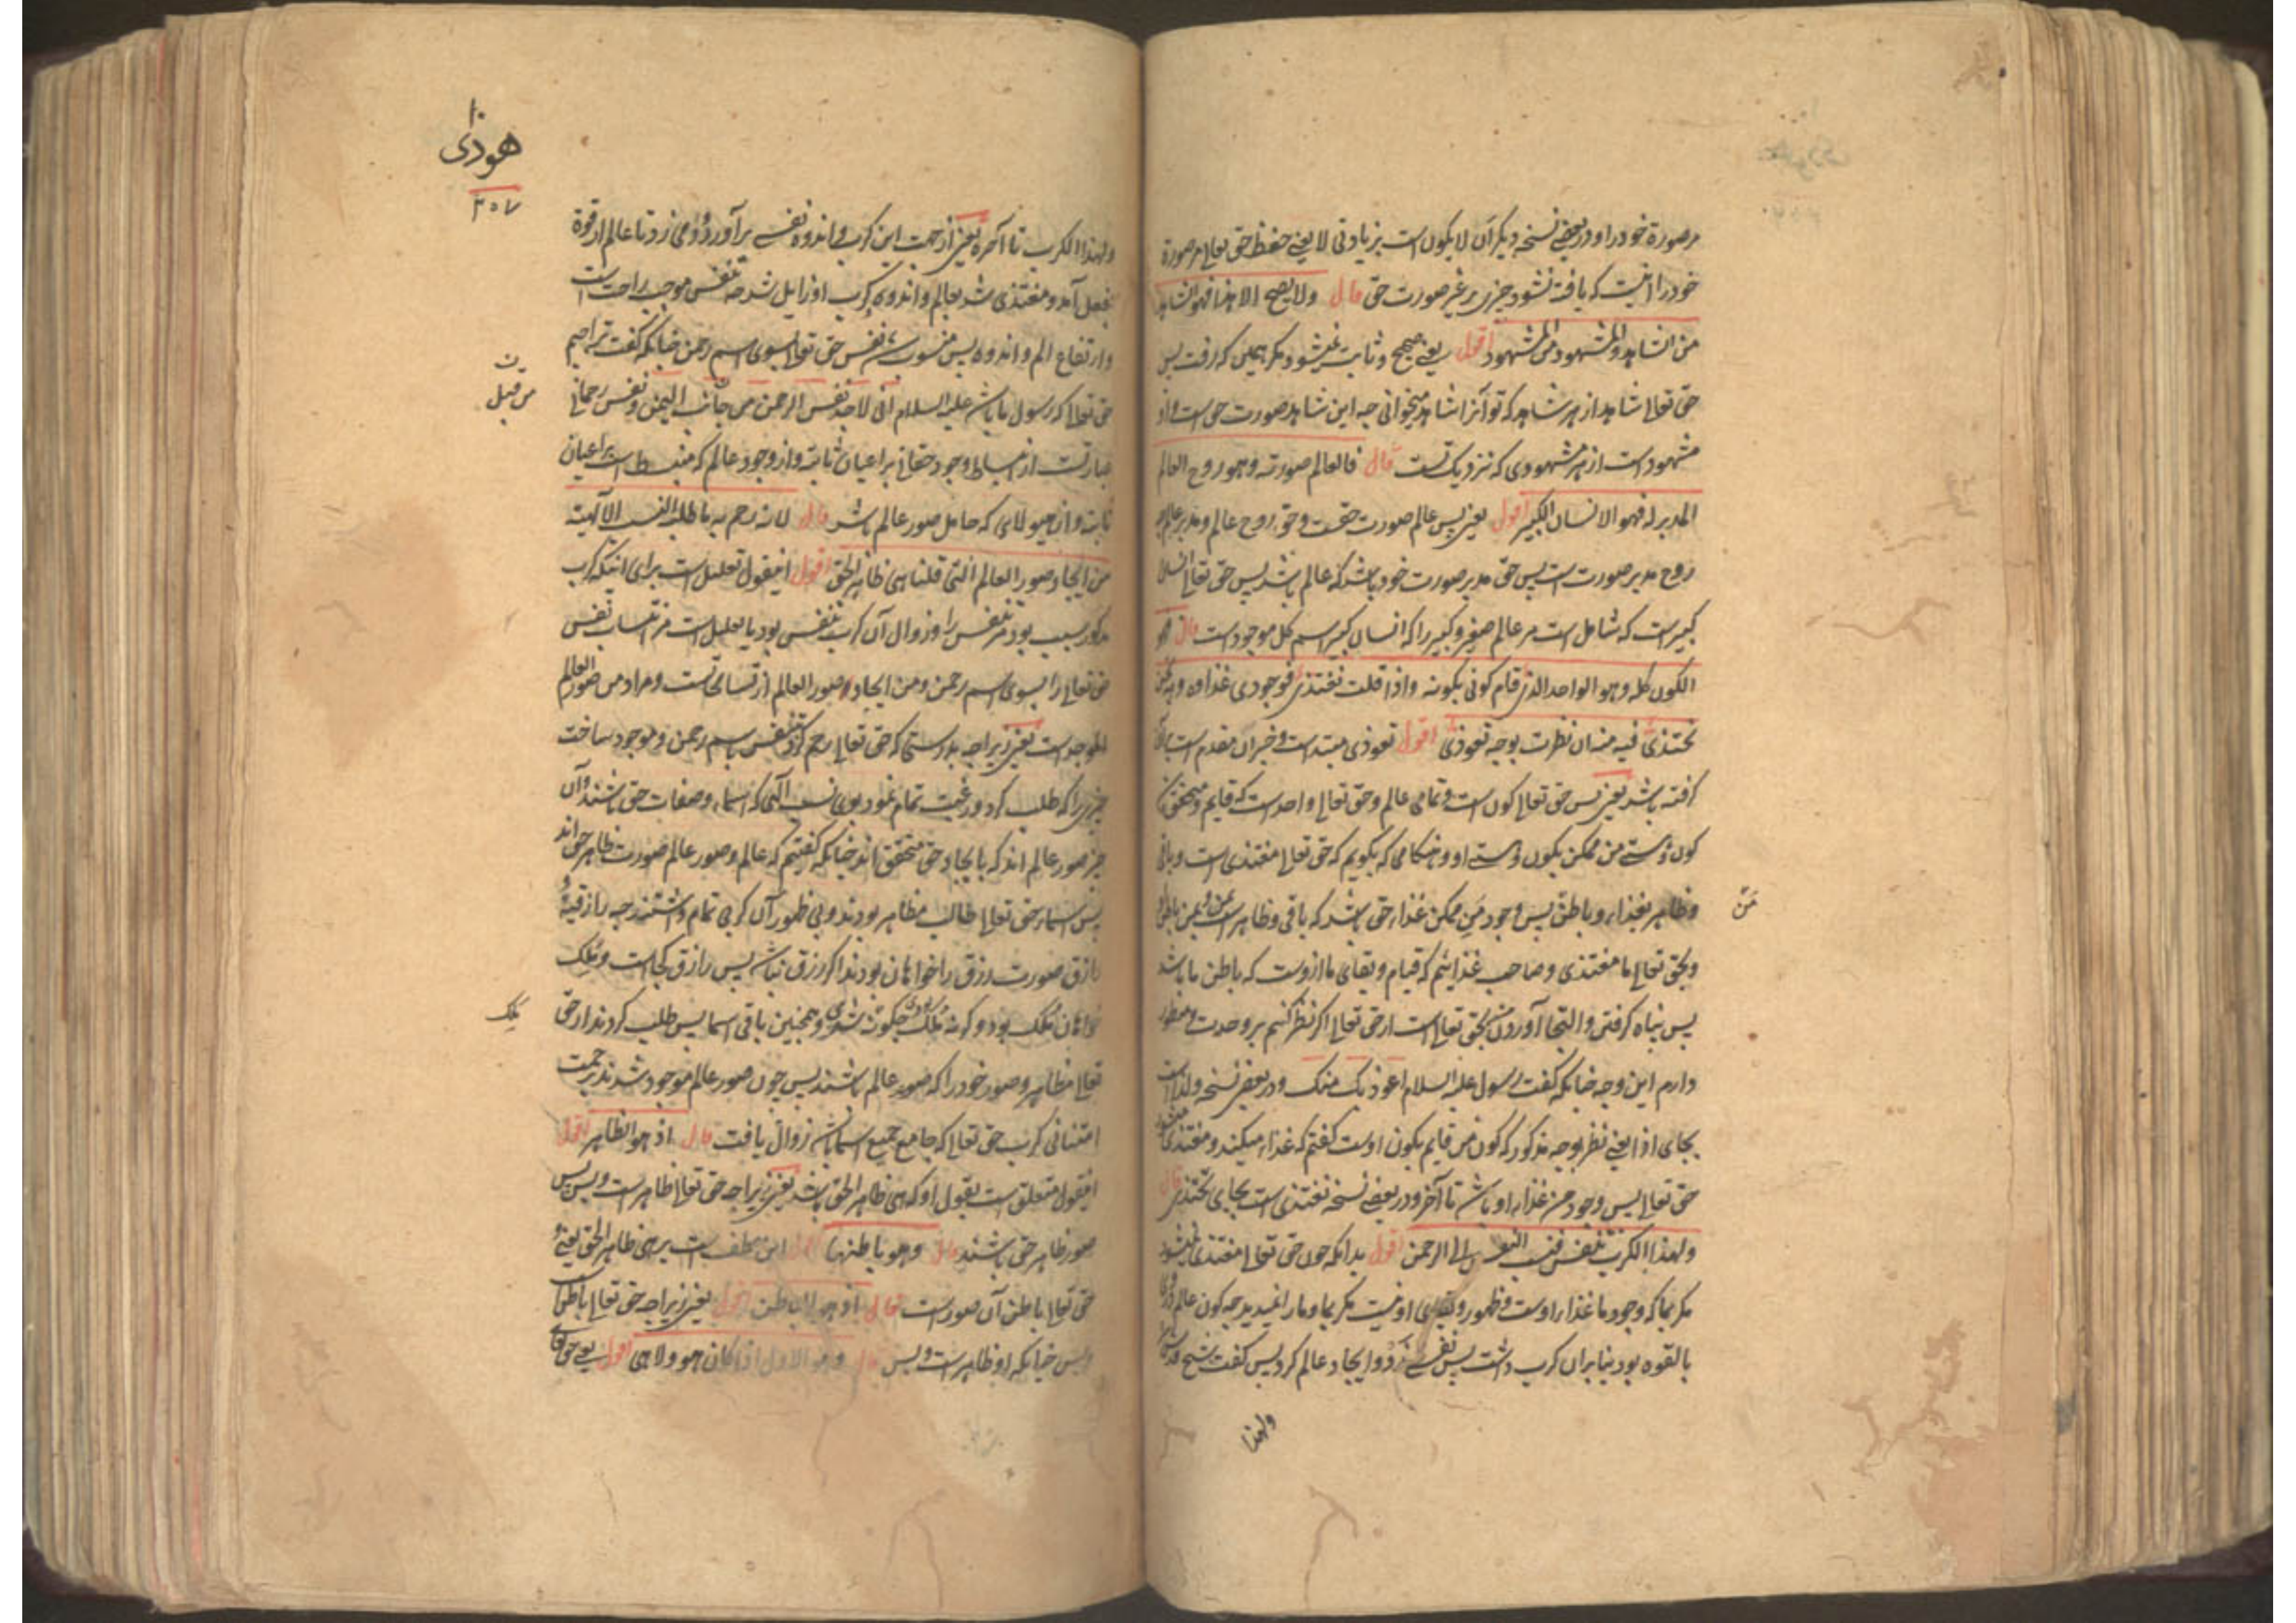 مر صورة خود را و در بعضے نسخه دیگر ان لا یکون است بزیادتی لا یعنے حفظ حق تعالی مر صورة
خود را اینست که یافت نشود چیزی بر غیر صورت حق قال ولا یصح الا هذا فهو الشاهد
من الشاهد والمشهود من المشهود اقول یعنے صحیح و ثابت نمیشود مکر همین که رفت پس
حق تعالی شاهد از هر شاهد که تو آنرا شاهد میخوانی چه این شاهد صورت حق است و او
مشهود است از هر مشهودی که نزدیک تست قال فالعالم صورته وهو روح العالم
المدبر له فهو الانسان الکبیر اقول یعنے پس عالم صورت حقست و حق روح عالم و مدبر عالم
روح مدبر صورت است پس حق مدبر صورت خود باشد که عالم باشد پس حق تعالی انسان
کبیر است که شامل است مر عالم صغیر و کبیر را که انسان کبیر اسم کل موجود است قال فهو
الکون کله وهو الواحد الذی قام کونی بکونه واذا قلت تغتذی فوجودی غذاوه وبه نحن
نحتذی فبه منه ان نظرت بوجه تعوذی اقول تعوذی مبتدا است و خبر ان مقدم است بر ان
کرفته باشد یعنے پس حق تعالی کون است و تمامی عالم و حق تعالی واحد است که قایم و متحقق
کون و هستے من ممکن بکون و هستے او و هنکامی که بکویم که حق تعالی مغتذی است و باقی
و ظاهر بغذاء و باطن پس وجود من ممکن غذاء حق باشد که باقی و ظاهر است بمن و من باطن
و بحق تعالی ما مغتذی و صاحب غذائیم که قیام و بقای ما ازوست که باطن ما باشد
پس پناه کرفتن و التجا آوردن من بحق تعالی است از حق تعالی اکر نظر کنیم بر وحدت و منظور
دارم این وجه چنانکه کفت رسول علیه السلام اعوذ بک منک و در بعضے نسخه ولذا است
بجای اذا یعنے نظر بوجه مذکور که کون من قایم بکون اوست کفتم که غذاء میکند و مغتذی میشود
حق تعالی پس وجود من غذاء او باشد تا آخر و در بعضے نسخه نغتذی است بجای نحتذی قال
ولهذا الکرب تنفس فنسب النفس الی الرحمن اقول بدانکه چون حق تعالی مغتذی نمیشود
مکر بما که وجود ما غذاء اوست و ظهور و بقای او نیست مکر بما و مار اغیدید چه کون عالم درو
بالقوه بود بنابر ان کرب داشت پس نفسے زد و ایجاد عالم کرد پس کفت شیخ قدس سره
ولهذا
من
هوذی
۳۵۷
ولهذا الکرب تا آخره یعنے از جهت این کرب و اندوه نفسے بر آورد و دمی زد تا عالم از قوة
بفعل آمد و مغتذی شد بعالم و اندوه و کرب او زایل شد چه تنفس موجب راحت است
و ارتفاع الم و اندوه پس منسوب شد نفس حق تعالی بسوی اسم رحمن چنانکه کفت ترا هم
حق تعالی که رسول باشد علیه السلام انی لاجد نفس الرحمن من جانب الیمن و نفس رحمانی
عبارتست از انبساط وجود حقانی بر اعیان ثابته و از وجود عالم که منبسط است بر اعیان
ثابته و از هیولای که حامل صور عالم باشد قال لانه رحم به ما طلبته النسب الالهیة
من ایجاد صور العالم التی قلنا هی ظاهر الحق اقول اینقول تعلیل است برای اینکه کرب
مذکور سبب بود مر تنفس را و زوال آن کرب بتنفس بود یا تعلیل است مر انتساب نفس
حق تعالی را بسوی اسم رحمن و من ایجاد صور العالم از تسامحات است و مراد من صور العالم
الموجد است یعنے زیراچه بدرستی که حق تعالی رحم کرد بتنفس باسم رحمن و موجود ساخت
چیزی را که طلب کرد و رغبت تمام نمود بوی نسب الهی که اسماء و صفات حق باشند و آن
چیز صور عالم اند که بایجاد حق متحقق اند چنانکه کفتیم که عالم و صور عالم صورت ظاهر حق اند
پس اسماء حق تعالی طالب مظاهر بودند و بی ظهور آن کرب تمام داشتند چه رازقیة و
رازق صورت رزق را خواهان بودند اکر رزق نباشد پس رازق کجا است و ملک
خواهان ملک بود و کرنه ملک بودی چکونه شدی و همچنین باقی اسما پس طلب کردند از حق
تعالی مظاهر و صور خود را که صور عالم باشند پس چون صور عالم موجود شدند برحمت
امتنانی کرب حق تعالی که جامع جمیع اسما باشد زوال یافت قال اذ هو الظاهر اقول
اینقول متعلق است بقول او که هی ظاهر الحق باشد یعنے زیراچه حق تعالی ظاهر است و بس پس
صور ظاهر حق باشند قال وهو باطنها اقول این عطف است بر هی ظاهر الحق یعنے و
حق تعالی باطن آن صور است قال اذ هو الباطن اقول یعنے زیراچه حق تعالی باطن است
و بس چنانکه او ظاهر است و بس قال وهو الاول اذ کان هو ولا هی اقول یعنے حق تعالی
من قبل
ملک